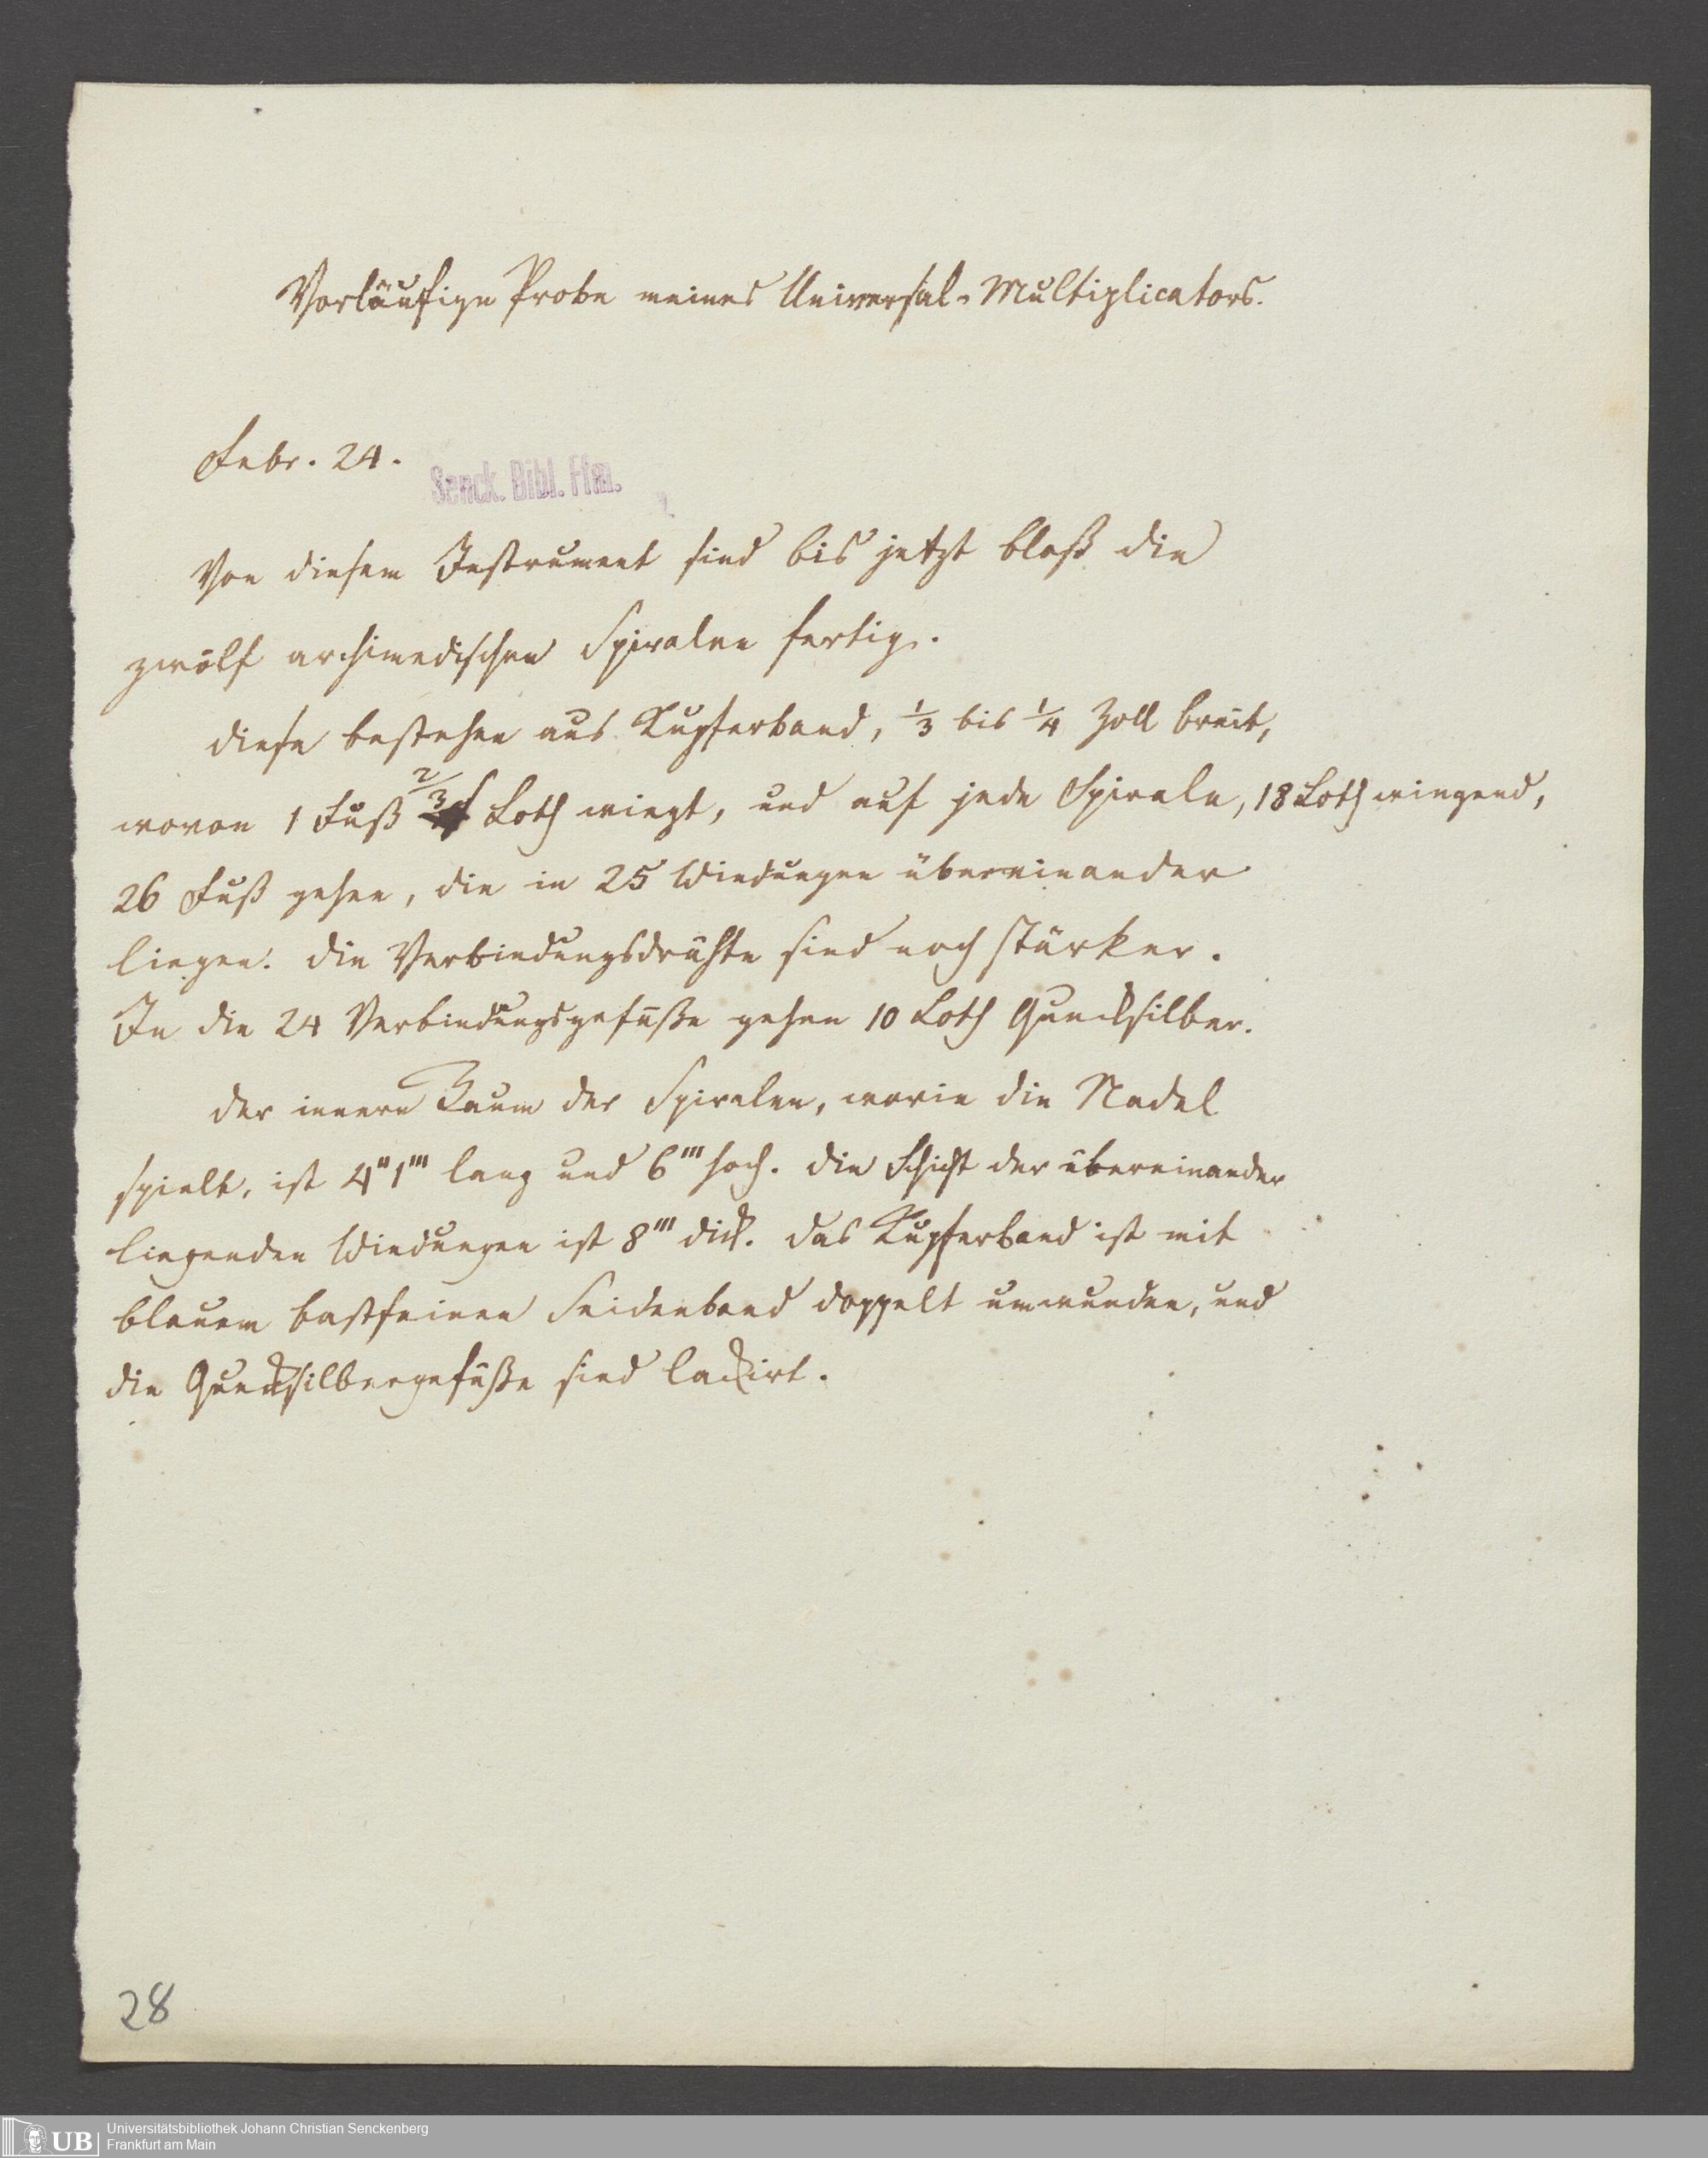 Vorläufige Probe meines Universal-Multiplicators.
Febr. 24.
Senck. Bibl. Ffm.
Von diesem Instrument sind bis jetzt bloß die
zwölf archimedischen Spiralen fertig.
Diese bestehen aus Kupferband, 1/3 bis 1/4 Zoll breit,
wovon 1 Fuß 2/3 Loth wiegt, und auf jede Spirale, 18 Loth wiegend,
26 Fuß gehen, die in 25 Windungen übereinander
liegen. Die Verbindungsdrähte sind noch stärker.
In die 24 Verbindungsgefäße gehen 10 Loth Quecksilber.
Der innere Raum der Spiralen, worin die Nadel
spielt, ist 4"1''' lang und 6''' hoch. Die Schicht der übereinander
liegenden Windungen ist 8''' dick. Das Kupferband ist mit
blauem bastfeinen Seidenband doppelt umwunden, und
die Quecksilbergefäße sind lackirt.
28
UB
Universitätsbibliothek Johann Christian Senckenberg
Frankfurt am Main